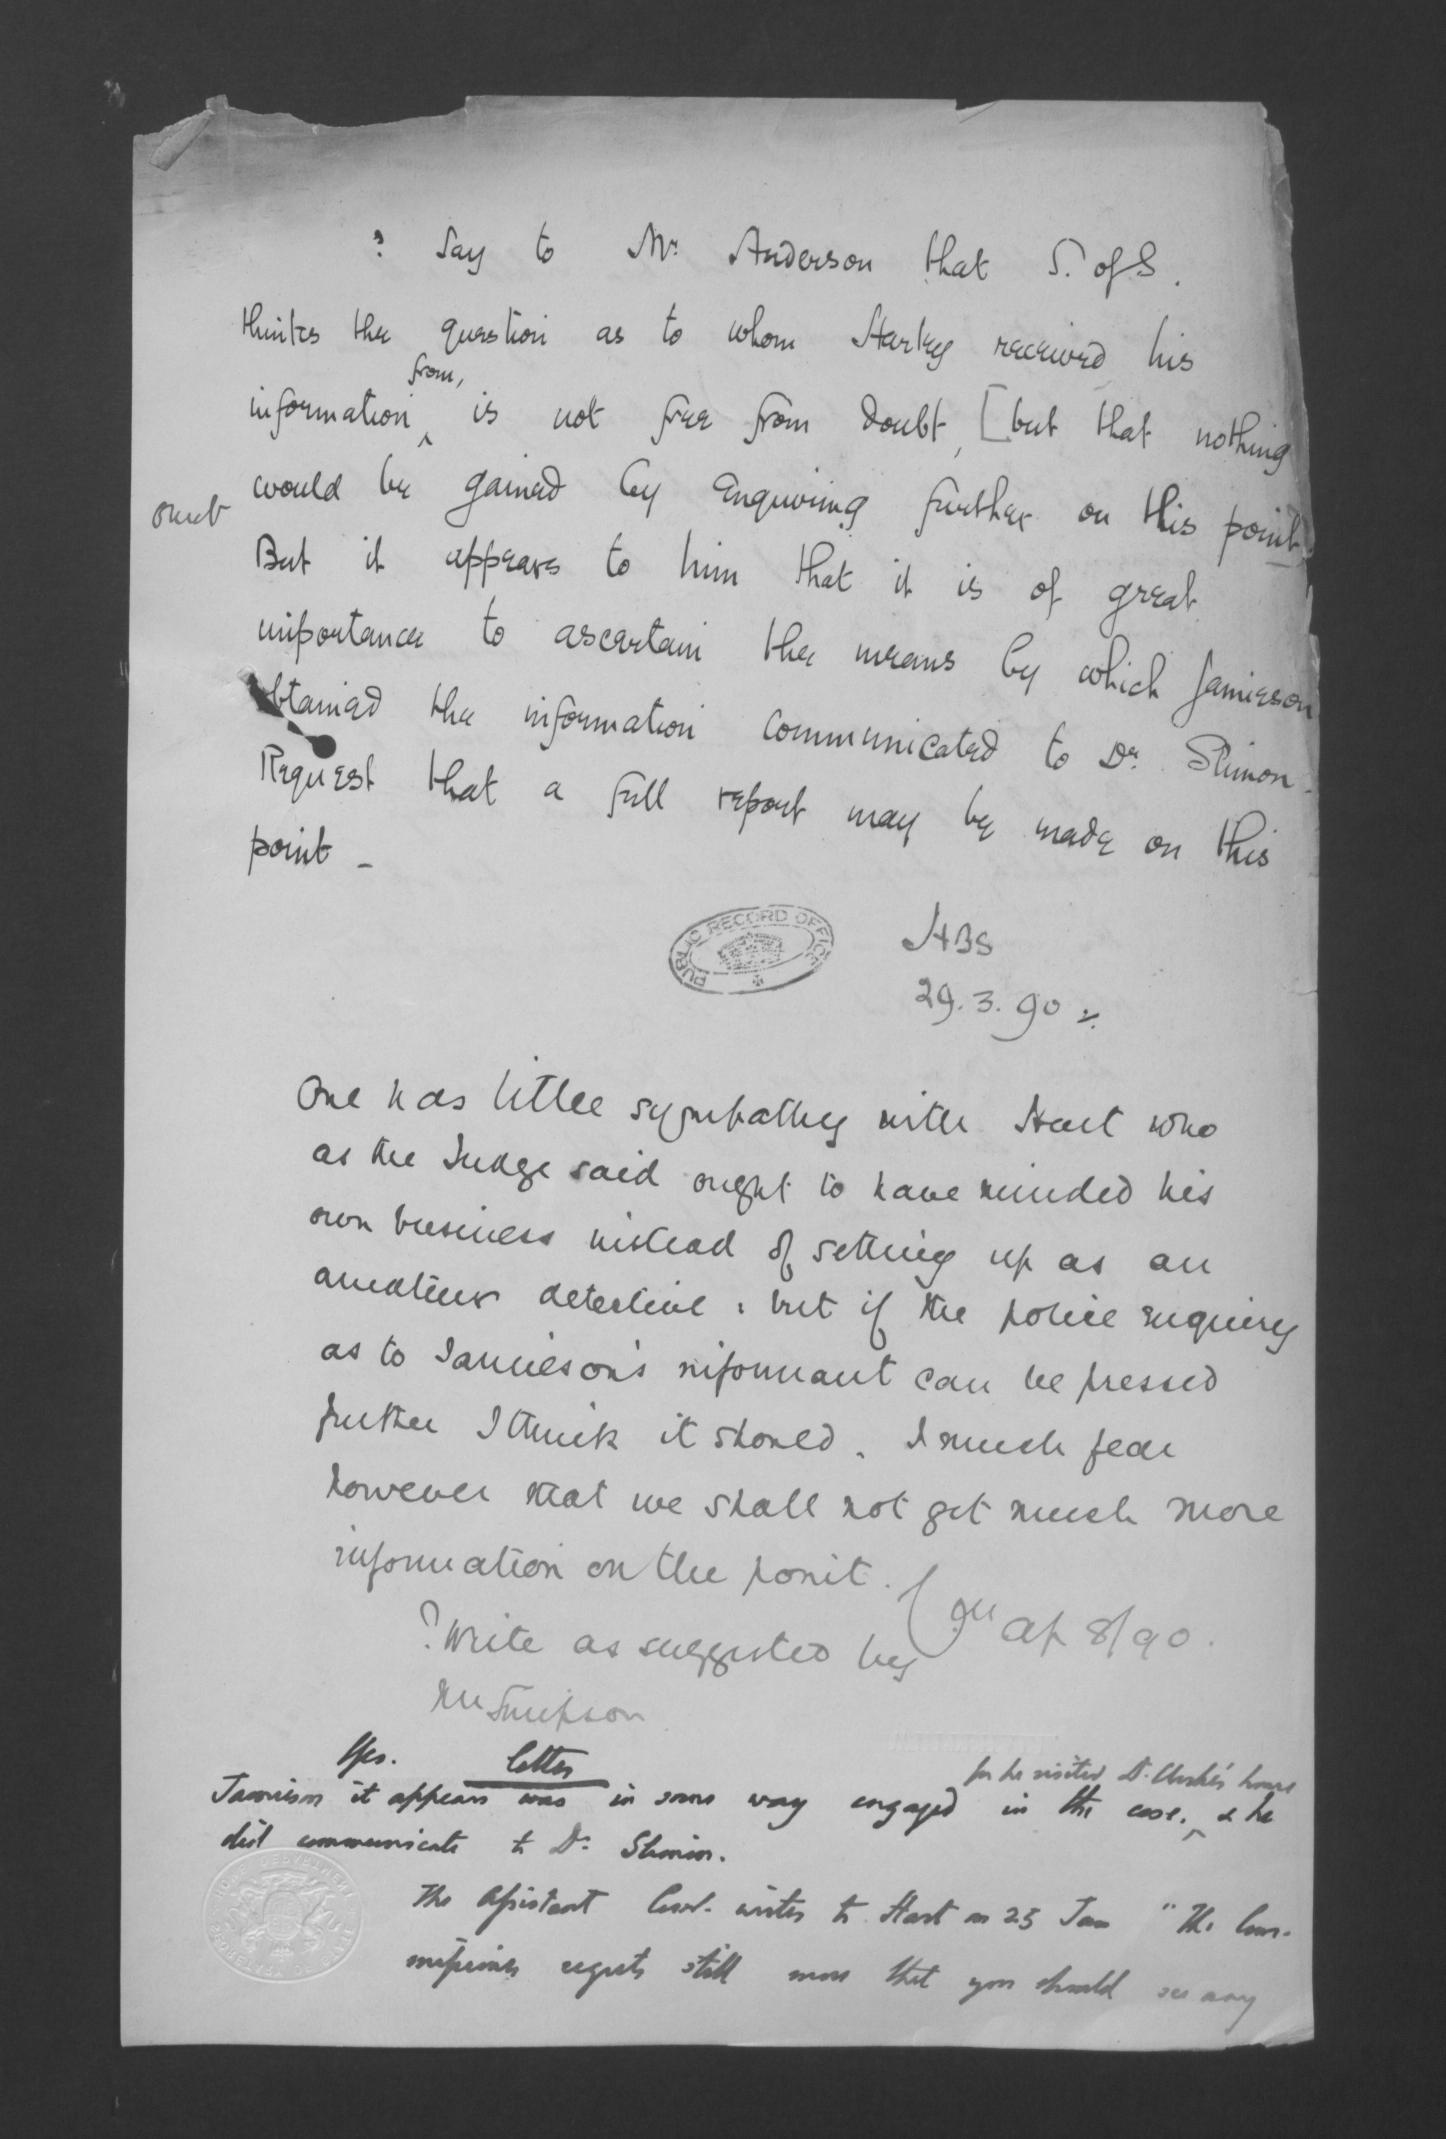 ? Say to Mr. Anderson that S. of S.
thinks the question as to whom Harley received his
from,
information ^ is not free from doubt, [but that nothing
omit
would be gained by enquiring further on this point]
But it appears to him that it is of great
importance to ascertain the means by which Jamieson
obtained the information communicated to Dr. Slimon.
Request that a full report may be made on this
point –
PUBLIC RECORD OFFICE
HBS
29.3.90
One has little sympathy with Hart who
as the Judge said ought to have minded his
own business instead of setting up as an
amateur detective: but if the police enquiry
as to Jamieson's informant can be pressed
further I think it should. I much fear
however that we shall not get much more
information on the point.
Ap 8/90.
? Write as suggested by
Mr Simpson
Yes. letter
for he visited Dr. Clarke's house
Jamieson it appears was in some way engaged in the case. ^ & he
did communicate to Dr. Slimon.
The Assistant Comr. writes to Hart on 25 Jan "The Com-
missioner regrets still more that you should see any